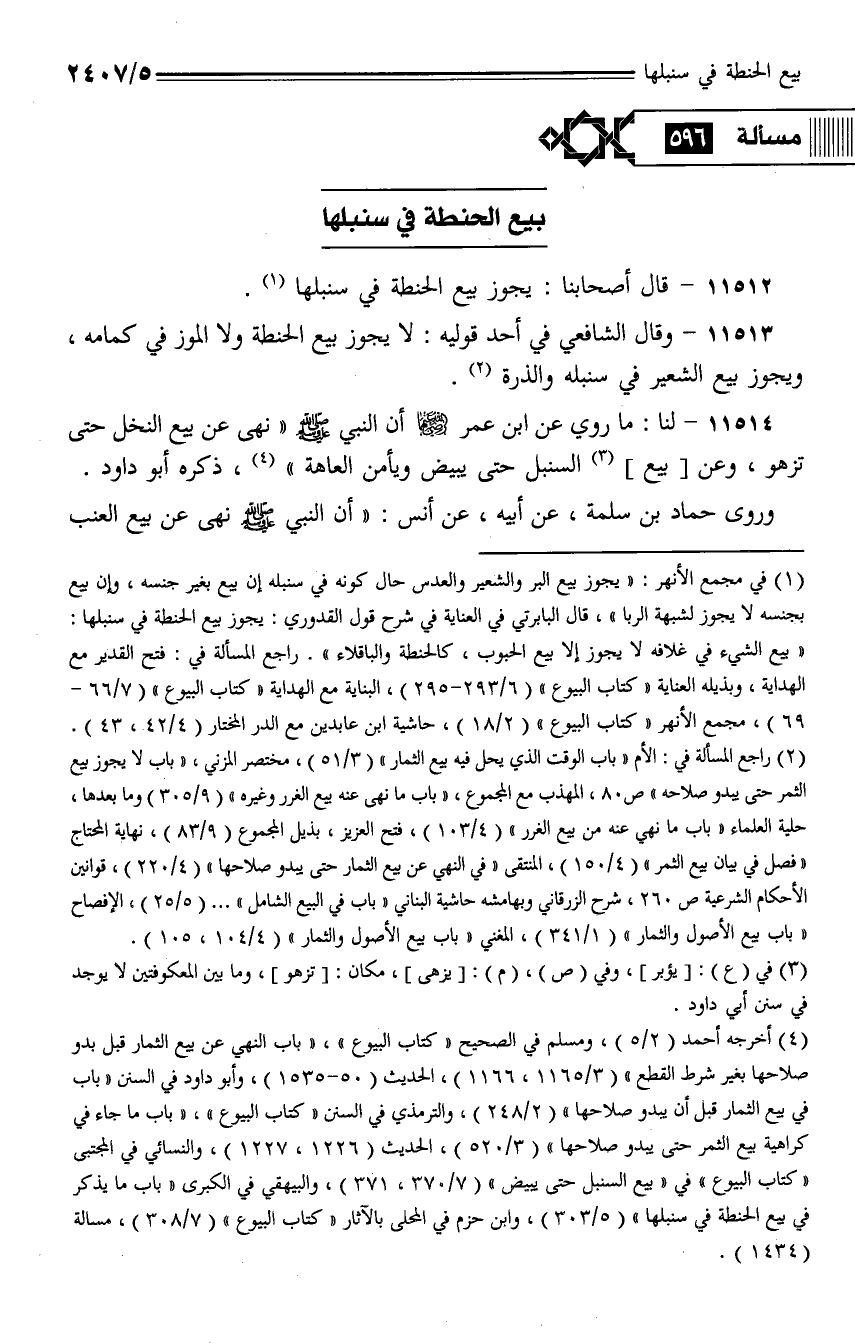 بيع الحنطة في سنبلها ٢٤٠٧/٥
مسألة ٥٩٦
بيع الحنطة في سنبلها
١١٥١٢ - قال أصحابنا : يجوز بيع الحنطة في سنبلها (١) .
١١٥١٣ - وقال الشافعي في أحد قوليه : لا يجوز بيع الحنطة ولا الموز في كمامه ،
ويجوز بيع الشعير في سنبله والذرة (٢) .
١١٥١٤ - لنا : ما روي عن ابن عمر ﵄ أن النبي ﷺ « نهى عن بيع النخل حتى
تزهو ، وعن [ بيع ] (٣) السنبل حتى يبيض ويأمن العاهة » (٤) ، ذكره أبو داود .
وروى حماد بن سلمة ، عن أبيه ، عن أنس : « أن النبي ﷺ نهى عن بيع العنب
(١) في مجمع الأنهر : « يجوز بيع البر والشعير والعدس حال كونه في سنبله إن بيع بغير جنسه ، وإن بيع
بجنسه لا يجوز لشبهة الربا » ، قال البابرتي في العناية في شرح قول القدوري : يجوز بيع الحنطة في سنبلها :
« بيع الشيء في غلافه لا يجوز إلا بيع الحبوب ، كالحنطة والباقلاء » . راجع المسألة في : فتح القدير مع
الهداية ، وبذيله العناية « كتاب البيوع » ( ٢٩٣/٦-٢٩٥ ) ، البناية مع الهداية « كتاب البيوع » ( ٦٦/٧ -
٦٩ ) ، مجمع الأنهر « كتاب البيوع » ( ١٨/٢ ) ، حاشية ابن عابدين مع الدر المختار ( ٤٢/٤ ، ٤٣ ) .
(٢) راجع المسألة في : الأم « باب الوقت الذي يحل فيه بيع الثمار » ( ٥١/٣ ) ، مختصر المزني ، « باب لا يجوز بيع
الثمر حتى يبدو صلاحه » ص٨٠ ، المهذب مع المجموع ، « باب ما نهى عنه بيع الغرر وغيره » ( ٣٠٥/٩ ) وما بعدها ،
حلية العلماء « باب ما نهي عنه من بيع الغرر » ( ١٠٣/٤ ) ، فتح العزيز ، بذيل المجموع ( ٨٣/٩ ) ، نهاية المحتاج
« فصل في بيان بيع الثمر » ( ١٥٠/٤ ) ، المنتقى « في النهي عن بيع الثمار حتى يبدو صلاحها » ( ٢٢٠/٤ ) ، قوانين
الأحكام الشرعية ص ٢٦٠ ، شرح الزرقاني وبهامشه حاشية البناني « باب في البيع الشامل » ... ( ٢٥/٥ ) ، الإفصاح
« باب بيع الأصول والثمار » ( ٣٤١/١ ) ، المغني « باب بيع الأصول والثمار » ( ١٠٤/٤ ، ١٠٥ ) .
(٣) في ( ع ) : [ يؤبر ] ، وفي ( ص ) ، ( م ) : [ يزهى ] ، مكان : [ تزهو ] ، وما بين المعكوفتين لا يوجد
في سنن أبي داود .
(٤) أخرجه أحمد ( ٥/٢ ) ، ومسلم في الصحيح « كتاب البيوع » ، « باب النهي عن بيع الثمار قبل بدو
صلاحها بغير شرط القطع » ( ١١٦٥/٣ ، ١١٦٦ ) ، الحديث ( ٥٠-١٥٣٥ ) ، وأبو داود في السنن « باب
في بيع الثمار قبل أن يبدو صلاحها » ( ٢٤٨/٢ ) ، والترمذي في السنن « كتاب البيوع » ، « باب ما جاء في
كراهية بيع الثمر حتى يبدو صلاحها » ( ٥٢٠/٣ ) ، الحديث ( ١٢٢٦ ، ١٢٢٧ ) ، والنسائي في المجتبى
« كتاب البيوع » في « بيع السنبل حتى يبيض » ( ٣٧٠/٧ ، ٣٧١ ) ، والبيهقي في الكبرى « باب ما يذكر
في بيع الحنطة في سنبلها » ( ٣٠٣/٥ ) ، وابن حزم في المحلى بالآثار « كتاب البيوع » ( ٣٠٨/٧ ) ، مسالة
( ١٤٣٤ ) .